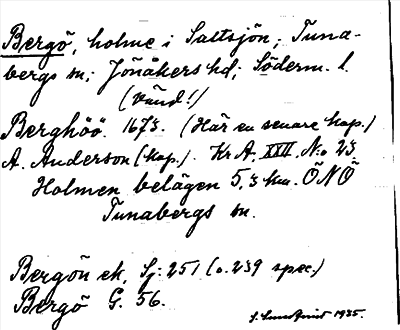 Bergö, holme i Saltsjön; Tuna-
bergs sn; Jönåkers hd; Söderm. l.
(vänd!)
Berghöö. 1673. (Här en senare kop.)
A. Anderson (kop.). Kr A. XXII, N:o 23
Holmen belägen 5,3 km. ÖNÖ
Tunabergs sn.
Bergön ek, Sj: 251 (o. 239 spec.)
Bergö G. 56.
S. Lundqvist 1935.